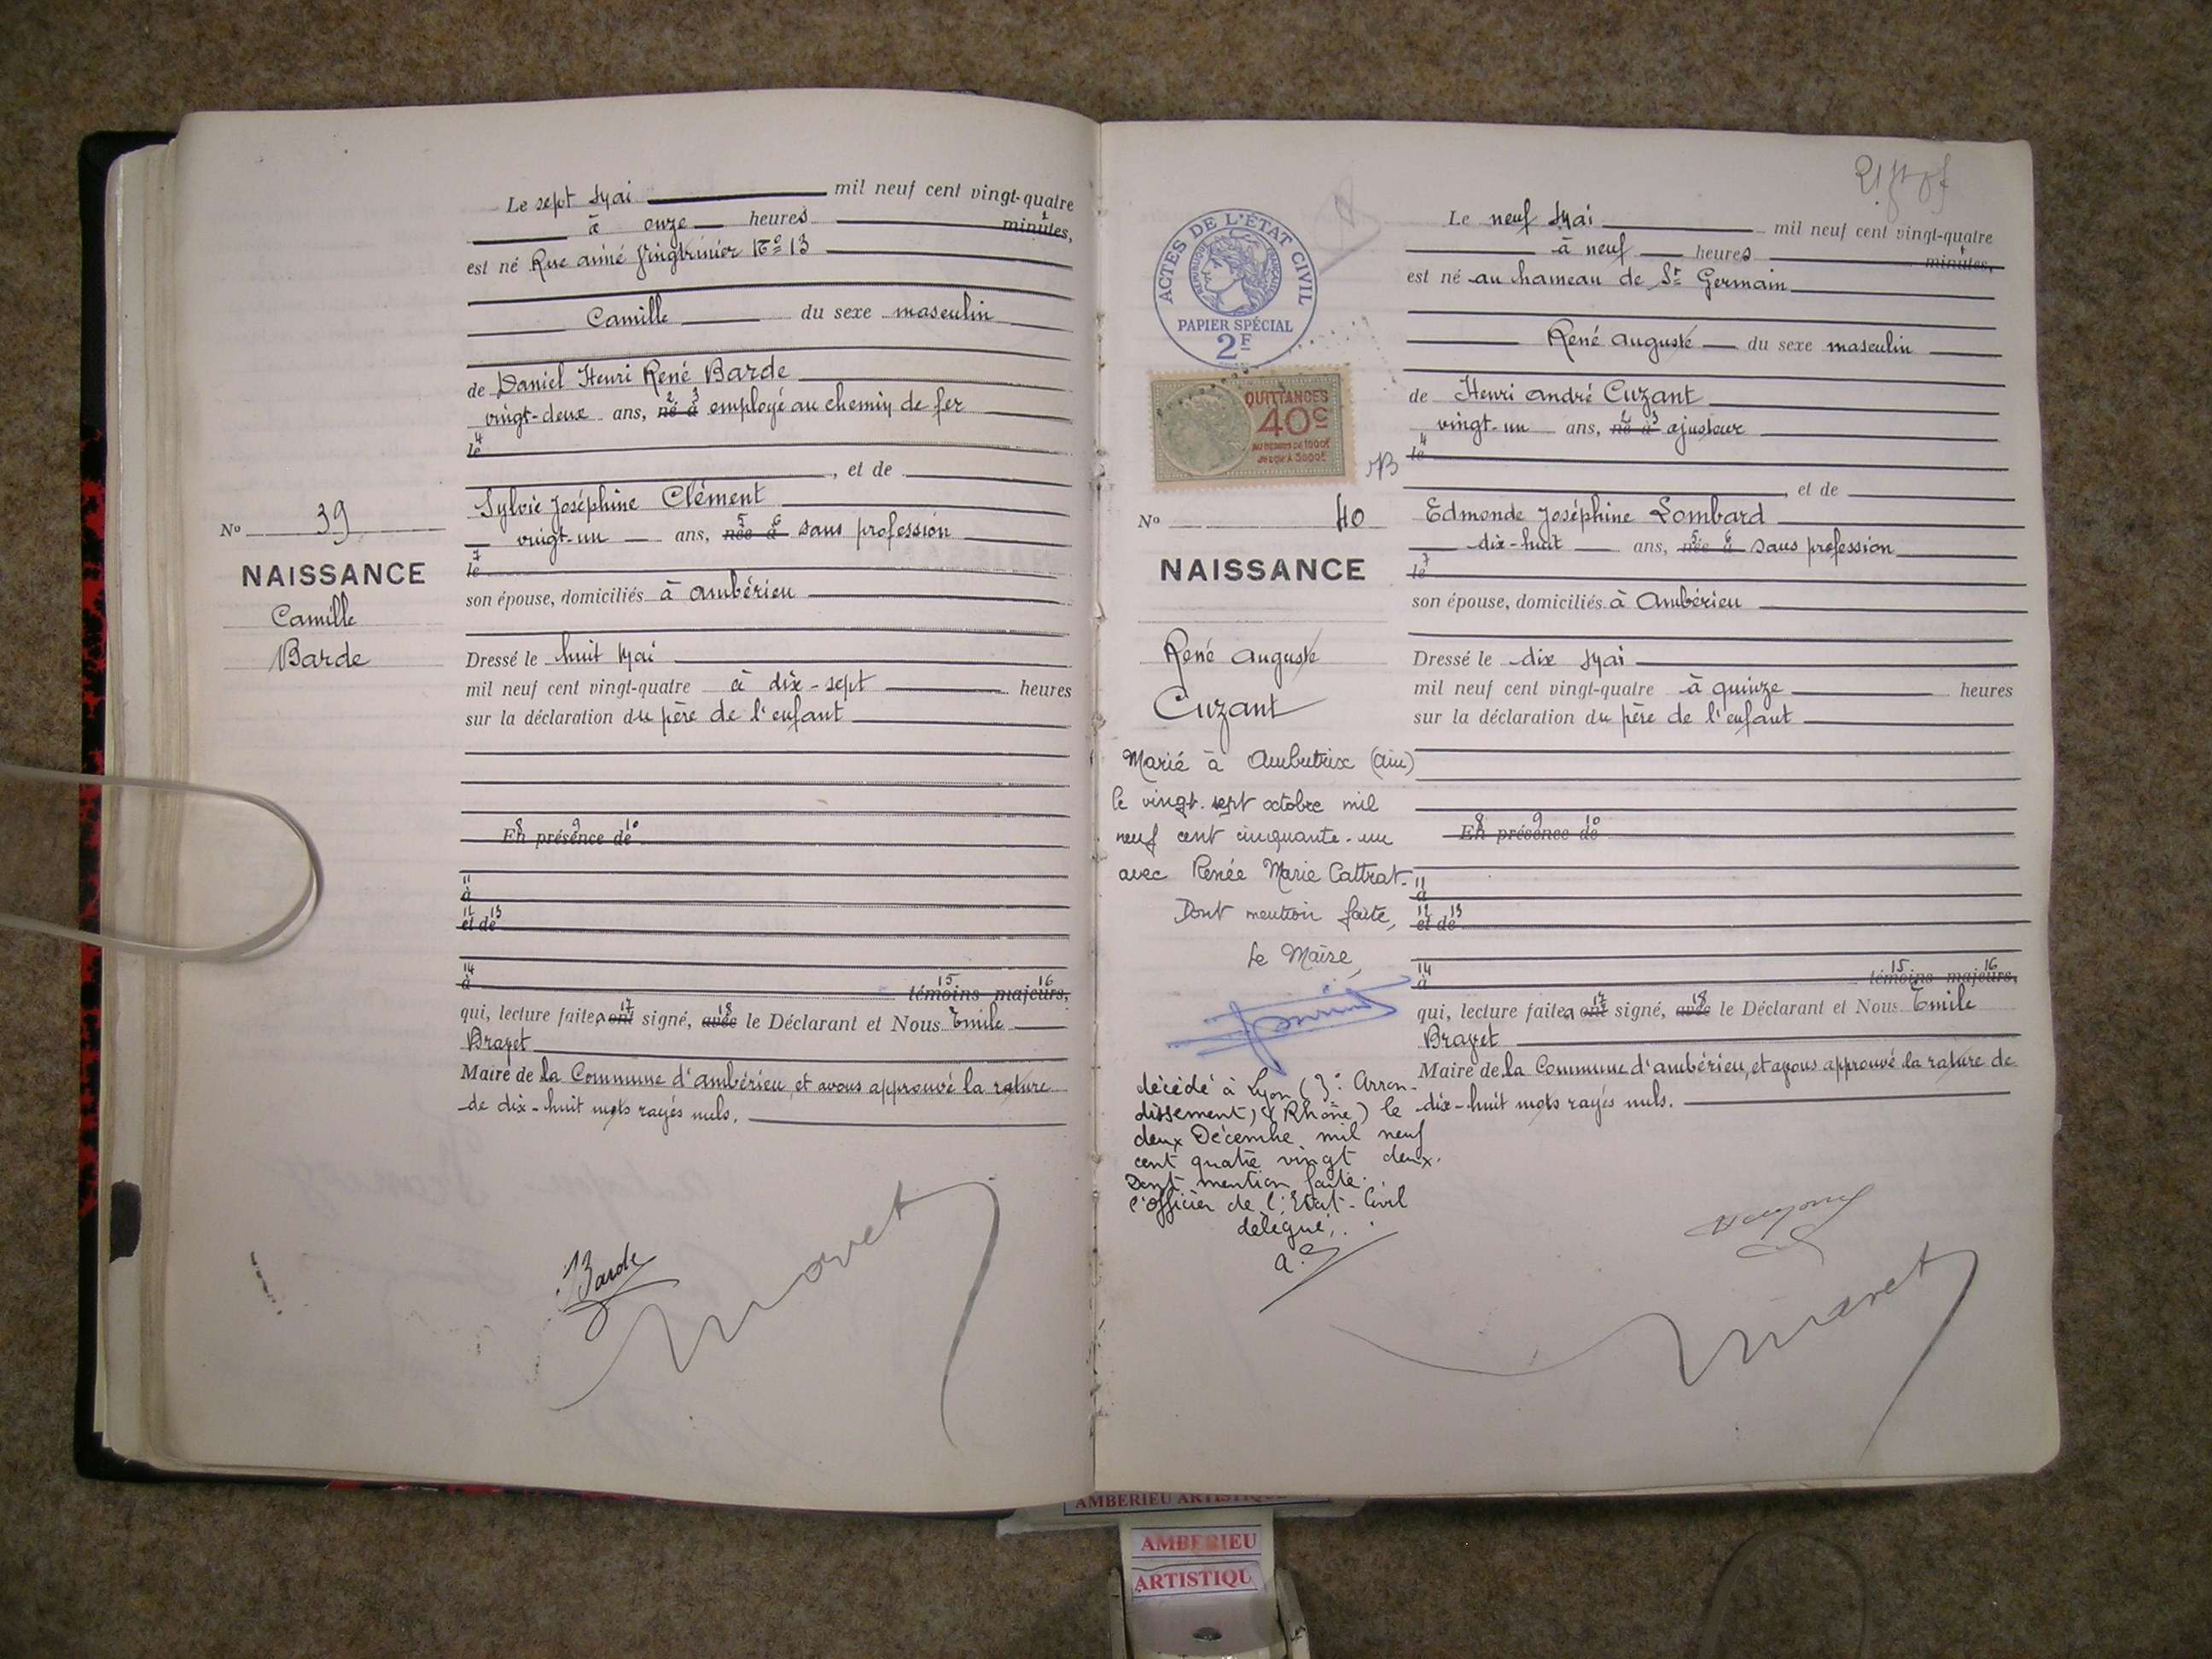 Le sept Mai mil neuf cent vingt-quatre
à onze heures minutes,
est né Rue aimé Vingtrinier No 13
Camille du sexe masculin
de Daniel Henri René Barde
vingt-deux ans, né à employé au chemin de fer
le
, et de
Sylvie Joséphine Clément
vingt-un ans, née à sans profession
le
son épouse, domiciliés à Ambérieu
Dressé le huit Mai
mil neuf cent vingt-quatre à dix-sept heures
sur la déclaration du père de l'enfant
En présence de
à
et de
à témoins majeurs,
qui, lecture faite, ont signé, avec le Déclarant et Nous Emile
Brayet
Maire de la Commune d'ambérieu, et avons approuvé la rature
de dix-huit mots rayés nuls.
Barde
No 39
NAISSANCE
Camille
Barde
ACTES DE L'ÉTAT CIVIL
RÉPUBLIQUE FRANÇAISE
PAPIER SPÉCIAL
2F
QUITTANCES
40c
No 40
NAISSANCE
René Auguste
Cuzant
Marié à Ambutrix (Ain)
le vingt-sept octobre mil
neuf cent cinquante-un
avec Renée Marie Cattrat.
Dont mention faite,
Le Maire,
décédé à Lyon (3e Arron-
dissement) (Rhône) le
deux Décembre mil neuf
cent quatre vingt deux.
Dont mention faite.
l'officier de l'Etat-Civil
délégué,
Le neuf Mai mil neuf cent vingt-quatre
à neuf heures minutes,
est né au hameau de St Germain
René Auguste du sexe masculin
de Henri André Cuzant
vingt-un ans, né à ajusteur
le
, et de
Edmonde Joséphine Lombard
dix-huit ans, née à sans profession
le
son épouse, domiciliés à Ambérieu
Dressé le dix Mai
mil neuf cent vingt-quatre à quinze heures
sur la déclaration du père de l'enfant
En présence de
à
et de
à témoins majeurs,
qui, lecture faite, ont signé, avec le Déclarant et Nous Emile
Brayet
Maire de la Commune d'ambérieu, et avons approuvé la rature de
dix-huit mots rayés nuls.
AMBERIEU ARTISTIQUE
AMBERIEU
ARTISTIQU